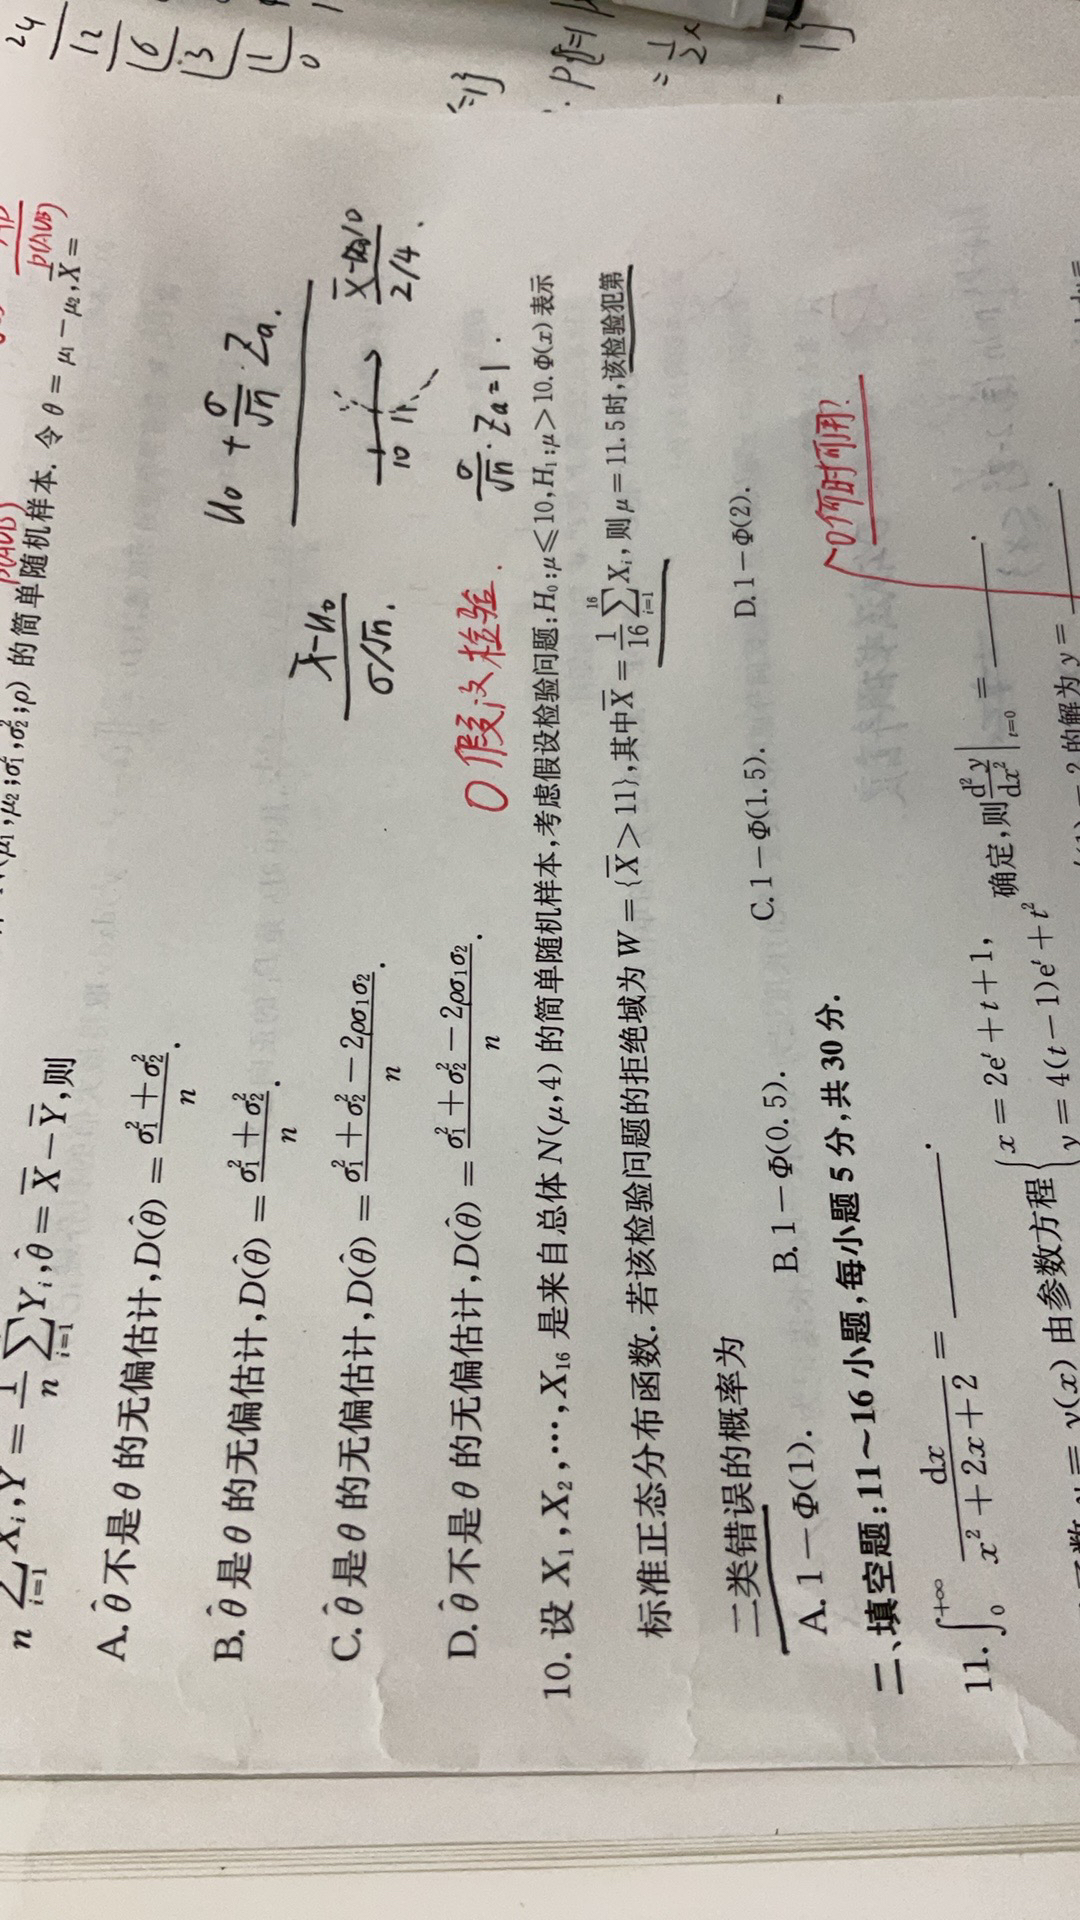 24 12 6 3 1 0
=1}
P{
= 1/2 x
P(AUB)
的简单随机样本. 令 θ = μ₁ − μ₂, X̄ =
n ∑ᵢ₌₁ Xᵢ, Ȳ = 1/n ∑ᵢ₌₁ Yᵢ, θ̂ = X̄ − Ȳ, 则
A. θ̂ 不是 θ 的无偏估计, D(θ̂) = (σ₁² + σ₂²)/n.
B. θ̂ 是 θ 的无偏估计, D(θ̂) = (σ₁² + σ₂²)/n.
C. θ̂ 是 θ 的无偏估计, D(θ̂) = (σ₁² + σ₂² − 2ρσ₁σ₂)/n.
D. θ̂ 不是 θ 的无偏估计, D(θ̂) = (σ₁² + σ₂² − 2ρσ₁σ₂)/n.
u₀ + σ/√n · Zα.
(X̄ − u₀)/(σ/√n).
10 11
2/4
σ/√n · Zα = 1.
假设检验.
10. 设 X₁, X₂, ⋯, X₁₆ 是来自总体 N(μ, 4) 的简单随机样本, 考虑假设检验问题: H₀: μ ≤ 10, H₁: μ > 10. Φ(x) 表示
标准正态分布函数. 若该检验问题的拒绝域为 W = {X̄ > 11}, 其中 X̄ = 1/16 ∑ᵢ₌₁¹⁶ Xᵢ, 则 μ = 11.5 时, 该检验犯第
二类错误的概率为
A. 1 − Φ(1). B. 1 − Φ(0.5). C. 1 − Φ(1.5). D. 1 − Φ(2).
二、填空题: 11～16 小题, 每小题 5 分, 共 30 分.
何时可用?
11. ∫₀^{+∞} dx/(x² + 2x + 2) = ________.
y(x) 由参数方程 { x = 2eᵗ + t + 1, y = 4(t − 1)eᵗ + t² 确定, 则 d²y/dx² |ₜ₌₀ = ________.
的解为 y = ________.